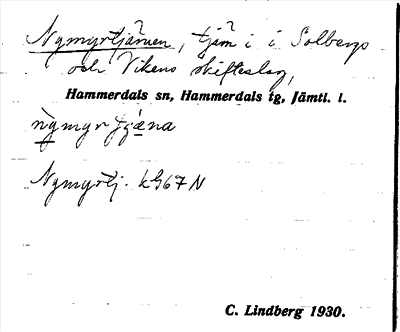 Nymyrtjärnen, tjärn i i Solbergs
och Vikens skifteslag,
Hammerdals sn, Hammerdals tg, Jämtl. l.
nymyrtjæna
Nymyrtj. kG67N
C. Lindberg 1930.